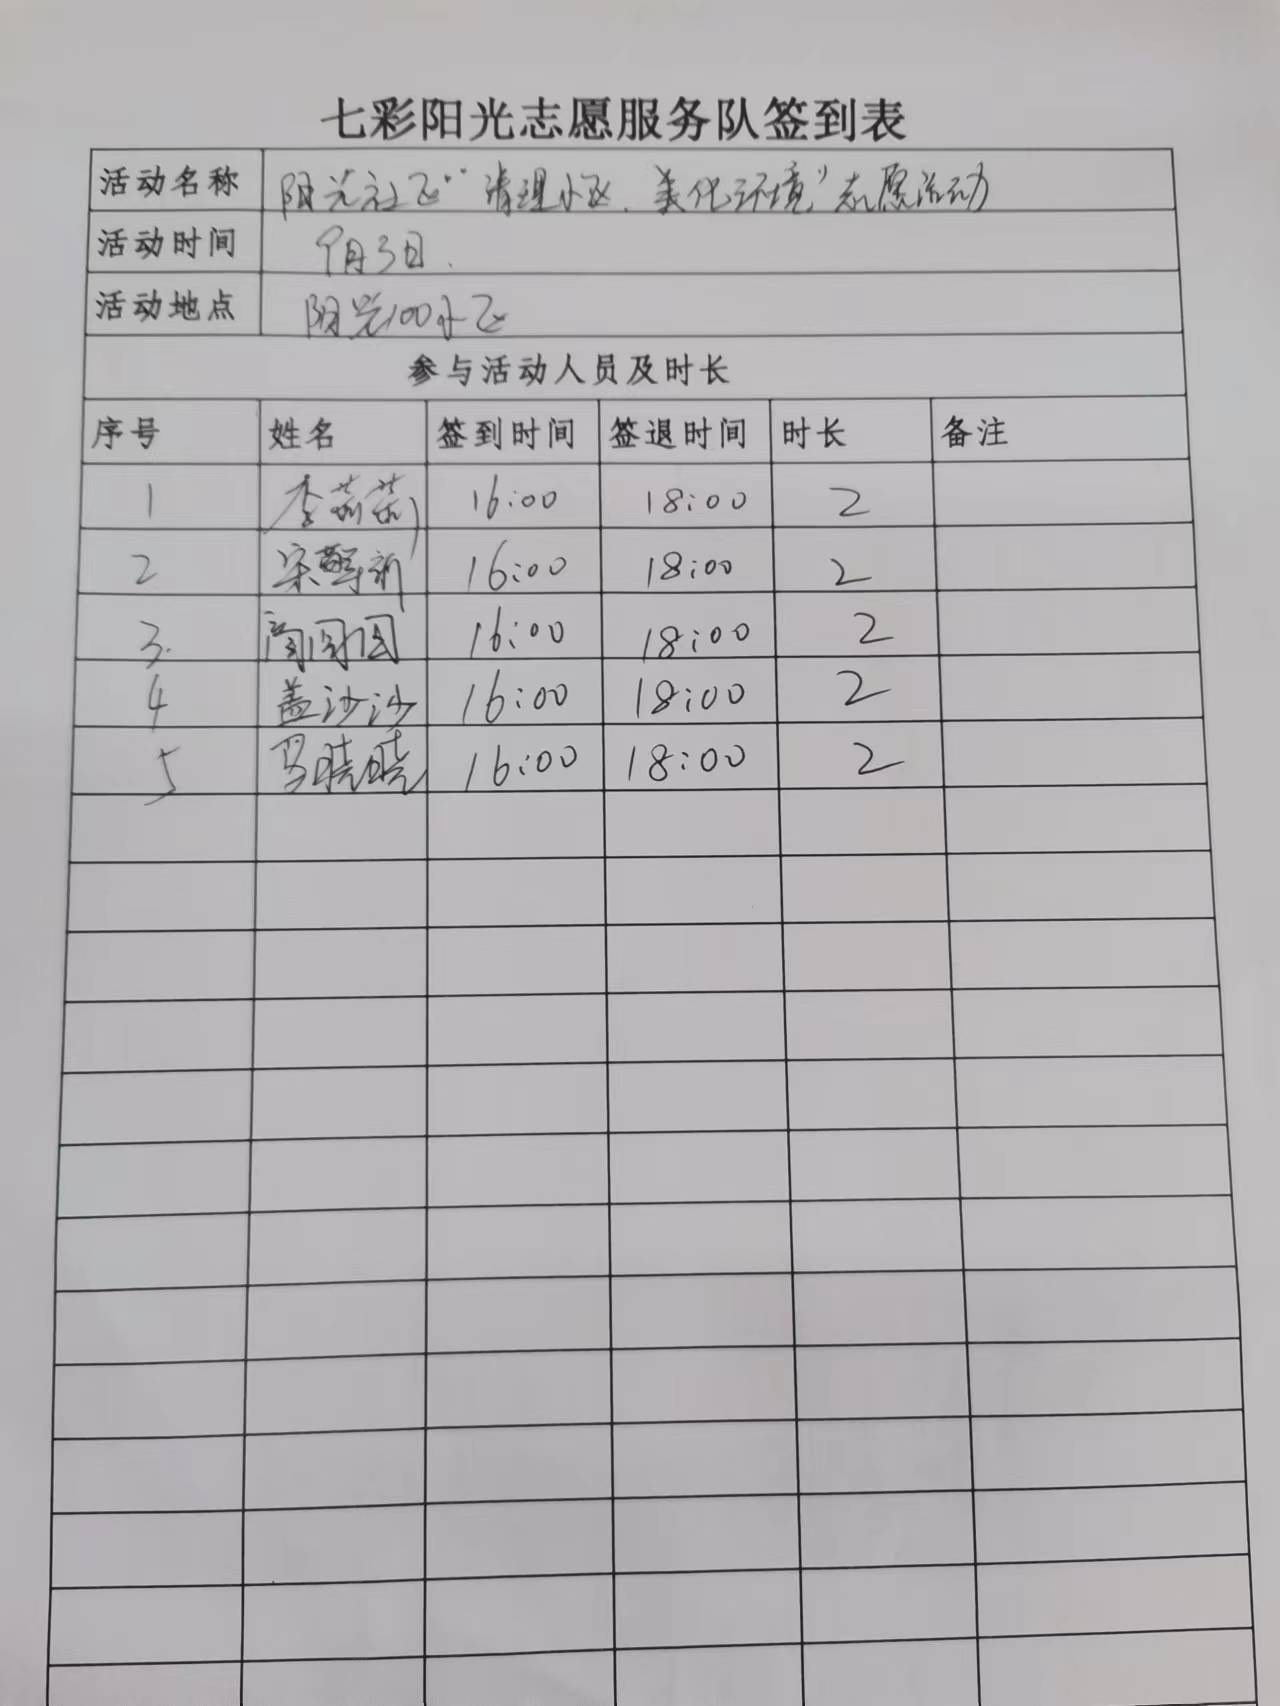 七彩阳光志愿服务队签到表
活动名称 阳光社区“清理小区、美化环境”志愿活动
活动时间 9月3日.
活动地点 阳光100小区
参与活动人员及时长
序号 姓名 签到时间 签退时间 时长 备注
1 李茹茹 16:00 18:00 2
2 宋 16:00 18:00 2
3. 16:00 18:00 2
4 盖沙沙 16:00 18:00 2
5 马晓晓 16:00 18:00 2